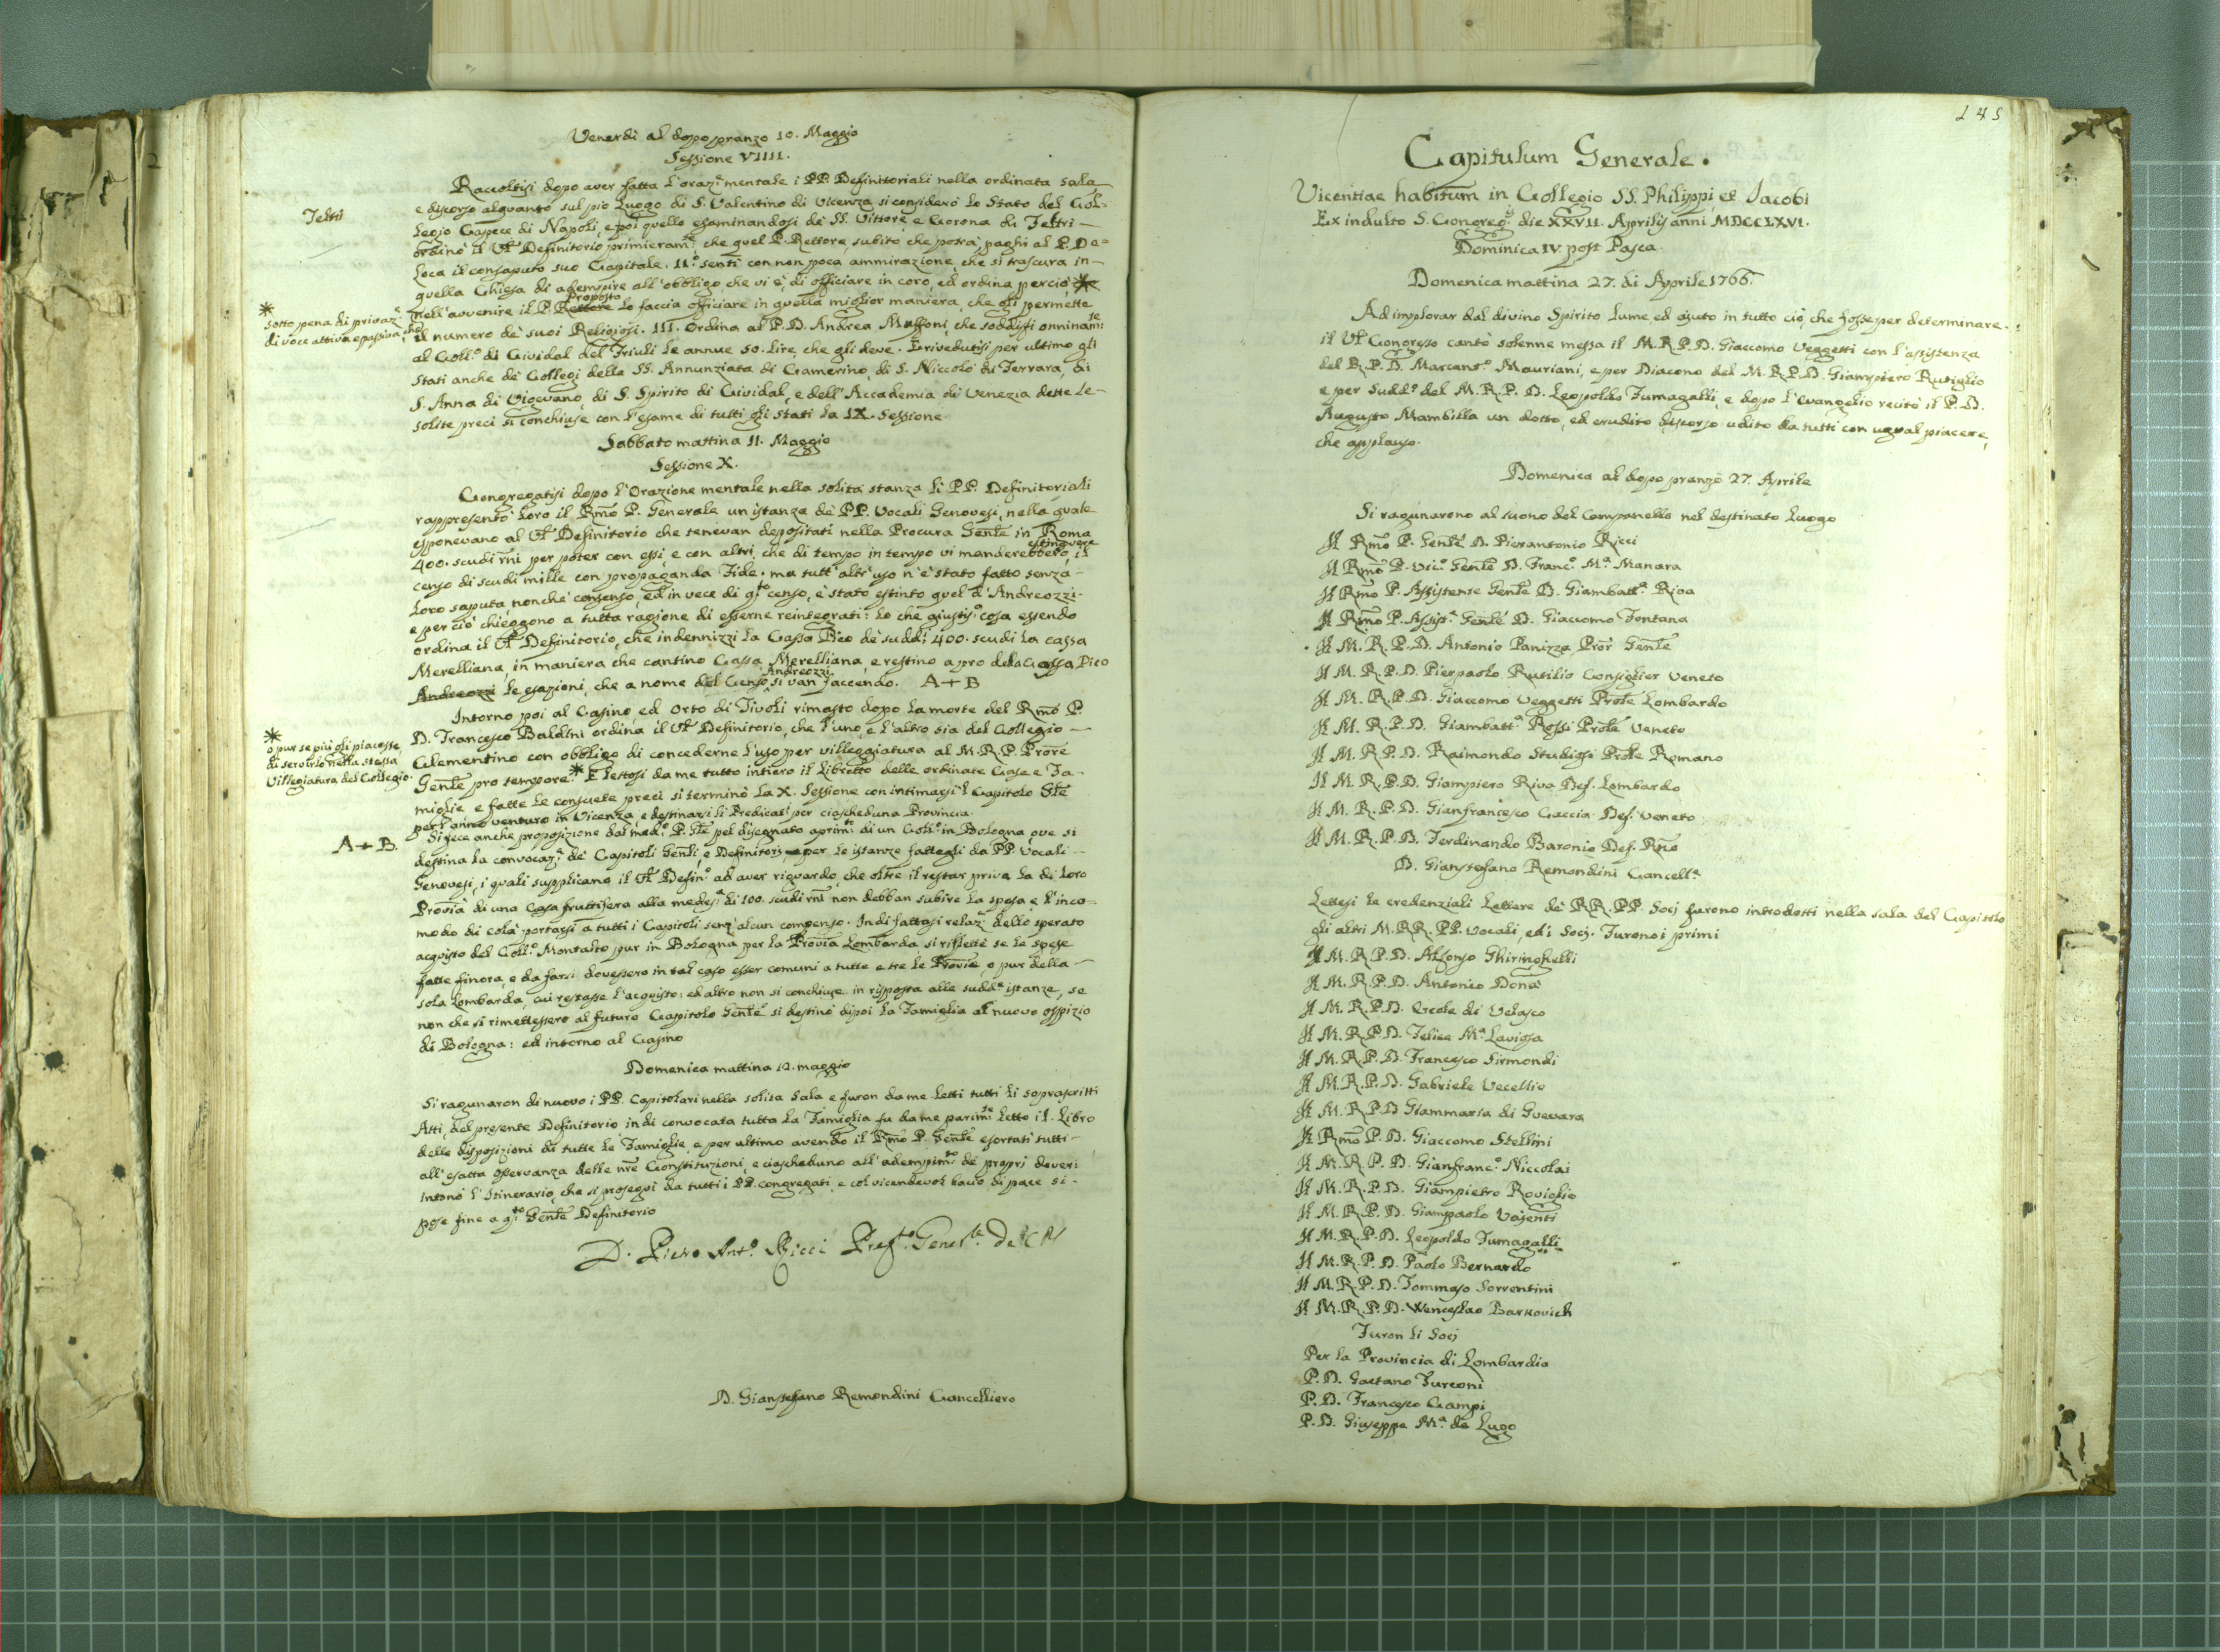 Venerdì al dopo pranzo 10. Maggio
Sessione VIIII.
Raccoltisi dopo aver fatta l'oraz.e mentale i PP. Definitoriali nella ordinata sala
e discorso alquanto sul pio Luogo di S. Valentino di Vicenza si considerò lo Stato del Col-
legio Capece di Napoli, e poi quello esaminandosi de' SS. Vittore, e Corona di Feltri
Feltri
ordinò il V. Definitorio primieram.e che quel P. Rettore subito che potrà, paghi al P. De=
Loca il consaputo suo Capitale. II.o sentì con non poca ammirazione, che si trascura in
quella Chiesa di adempire all'obbligo che vi è di officiare in coro, ed ordina perciò, *
* sotto pena di privaz.e
di voce attiva e passiva, che
nell'avvenire il P. Rettore Proposto lo faccia officiare in quella miglior maniera, che gli permette
il numero de' suoi Religiosi. III. Ordina al P. D. Andrea Maffoni, che soddisfi onninam.te
al Coll.o di Cividal del Friuli le annue 50. lire, che gli deve. E rivedutisi per ultimo gli
stati anche de' Collegi della SS. Annunziata di Camerino, di S. Niccolò di Ferrara, di
S. Anna di Vigevano, di S. Spirito di Cividal, e dell'Accademia di Venezia dette le
solite preci si conchiuse con l'esame di tutti gli stati la IX. Sessione.
Sabbato mattina 11. Maggio
Sessione X.
Congregatisi dopo l'Orazione mentale nella solita stanza li PP. Definitoriali
rappresentò loro il Rmo P. Generale un istanza de' PP. Vocali Genovesi, nella quale
esponevano al V. Definitorio che tenevan depositati nella Procura Genle in Roma
400. scudi rni per poter con essi, e con altri, che di tempo in tempo vi manderebbero, estinguere il
censo di scudi mille con propaganda Fide. ma tutt'altr'uso n'è stato fatto senza
loro saputa, nonché consenso, ed in vece di q.to censo, è stato estinto quel d'Andreozzi.
e per ciò chieggono a tutta ragione di esserne reintegrati: lo che giustis.o cosa essendo
ordina il V. Definitorio, che indennizzi la Cassa Pico de' suddi 400. scudi la cassa
Merelliana, in maniera che cantino Cassa Merelliana, e restino a pro della Cassa Pico
Andreozzi le esazioni, che a nome del Censo Andreozzi si van facendo. A+B
Intorno poi al Casino, ed Orto di Tivoli rimasto dopo la morte del Rmo P.
D. Francesco Baldini ordina il V. Definitorio, che l'uno, e l'altro sia del Collegio
Clementino con obbligo di concederne l'uso per villeggiatura al M. R. P. Prore
* o pur se più gli piacesse,
di servirlo nella stessa
Villegiatura del Collegio.
Genle pro tempore.* E lettosi da me tutto intiero il libretto delle ordinate Case e Fa-
miglie e fatte le consuete preci si terminò la X. Sessione con intimarsi l Capitolo Gle
per l'anno venturo in Vicenza, e destinarsi li Predicat.i per ciascheduna Provincia.
A+B.
Si fece anche proposizione dal med.o P. Gle pel disegnato aprim.to di un Coll.o in Bologna, ove si
destina la convocaz.e de' Capitoli Genli, e Definitorj per le istanze fattegli da PP. Vocali
Genovesi, i quali supplicano il V. Defin.o ad aver riguardo, che oltre il restar priva la di loro
Provia di una Casa fruttifera alla medes.a di 100. scudi rni non debban subire la spesa e l'inco=
modo di colà portarsi a tutti i Capitoli senz'alcun compenso. Indi fattasi relaz.e dello sperato
acquisto del Coll.o Montalto pur in Bologna per la Provia Lombarda si riflettè se le spese
fatte finora, e da farsi dovessero in tal caso esser comuni a tutte e tre le Provie, o pur della
sola Lombarda, cui restasse l'acquisto: ed altro non si conchiuse in risposta alle sudd.e istanze, se
non che si rimettessero al futuro Capitolo Genle si destinò dipoi la Famiglia al nuovo ospizio
di Bologna: ed intorno al Casino
Domenica mattina 12. maggio
Si ragunaron di nuovo i PP. Capitolari nella solita Sala e furon da me letti tutti li soprascritti
Atti del presente Definitorio indi convocata tutta la Famiglia fu da me parim.te letto il Libro
delle disposizioni di tutte le Famiglie, e per ultimo avendo il Rmo P. Genle esortati tutti
all'esatta osservanza delle nre Constituzioni, e ciascheduno all'adempim.to de' propri doveri
intonò l'Itinerario, che si proseguì da tutti i PP. congregati, e col vicendevol bacio di pace si
pose fine a q.to Genle Definitorio
D. Piero Ant.o Ricci Prep.to Gen.le
D. Gianstefano Remondini Cancelliero
245
Capitulum Generale.
Vicentiae habitum in Collegio SS. Philippi, et Jacobi
Ex indulto S. Congreg.s die XXVII. Aprilis anni MDCCLXVI.
Dominica IV. post Pasca.
Domenica mattina 27. di Aprile 1766.
Ad implorar dal divino Spirito lume, ed ajuto in tutto ciò, che fosse per determinare
il V. Congresso cantò solenne messa il M. R. P. D. Giaccomo Veggetti con l'assistenza
del R. P. D. Marcant.o Mauriani, e per Diacono del M. R. P. D. Giampiero Rutiglio
e per Sudd.o del M. R. P. D. Leopoldo Fumagalli, e dopo l'Evangelio recitò il P. D.
Augusto Mambilla un dotto, ed erudito discorso udito da tutti con ugual piacere,
che applauso.
Domenica al dopo pranzo 27. Aprile
Si ragunarono al suono del Campanello nel destinato Luogo
Il Rmo P. Genle D. Pierantonio Ricci
Il Rmo P. Vic.o Genle D. Franc.o M.a Manara
Il Rmo P. Assistente Genle D. Giambatt.a Riva
Il Rmo P. Assist.e Genle D. Giaccomo Fontana
Il M. R. P. D. Antonio Panizza Pror Genle
Il M. R. P. D. Pierpaolo Rutilio Consiglier Veneto
Il M. R. P. D. Giaccomo Veggetti Prole Lombardo
Il M. R. P. D. Giambatt.a Rossi Prole Veneto
Il M. R. P. D. Raimondo Studiosi Prole Romano
Il M. R. P. D. Giampiero Riva Def. Lombardo
Il M. R. P. D. Gianfrancesco Caccia Def. Veneto
Il M. R. P. D. Ferdinando Baronio Def. Rno
D. Gianstefano Remondini Cancell.e
Lettesi le credenziali Lettere de' RR. PP. Socj furono introdotti nella sala del Capitolo
gli altri M. RR. PP. Vocali, ed i Socj. Furono i primi
Il M. R. P. D. Alfonso Ghiringhelli
Il M. R. P. D. Antonio Donà
Il M. R. P. D. Ercole di Velasco
Il M. R. P. D. Felice M.a Lavigsa
Il M. R. P. D. Francesco Sirmondi
Il M. R. P. D. Gabriele Vecellio
Il M. R. P. D Giammaria di Guevara
Il Rmo P. D. Giaccomo Stellini
Il M. R. P. D. Gianfranc.o Niccolai
Il M. R. P. D. Giampietro Roviglio
Il M. R. P. D. Giampaolo Vajenti
Il M. R. P. D. Leopoldo Fumagalli
Il M. R. P. D. Paolo Bernardo
Il M. R. P. D. Tommaso Sorrentini
Il M. R. P. D. Wenceslao Barkovich
Furon li Socj
Per la Provincia di Lombardia
P. D. Gaetano Turconi
P. D. Francesco Campi
P. D. Giuseppe M.a de Lugo